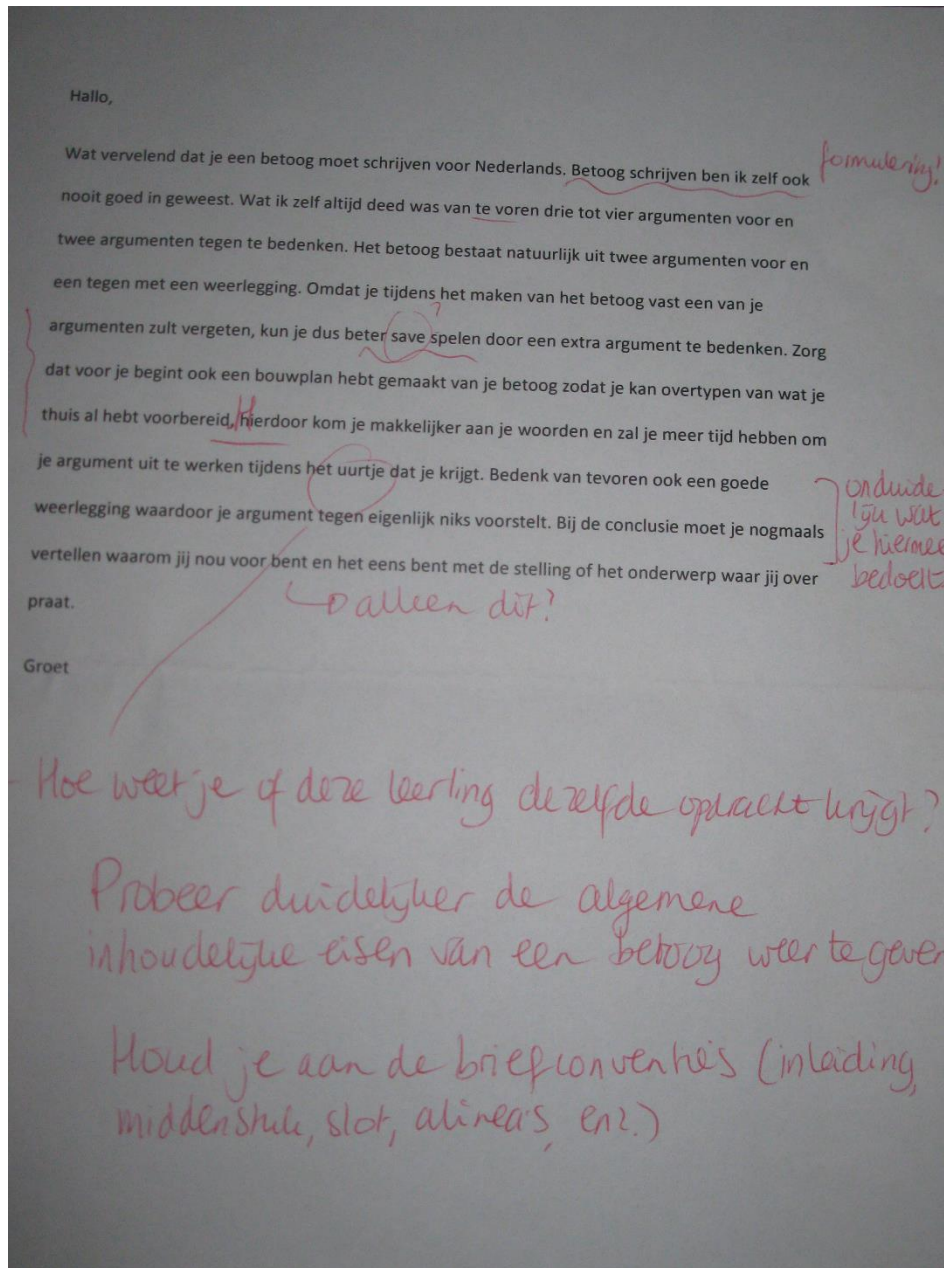 Hallo,
Wat vervelend dat je een betoog moet schrijven voor Nederlands. Betoog schrijven ben ik zelf ook
formulering!
nooit goed in geweest. Wat ik zelf altijd deed was van te voren drie tot vier argumenten voor en
twee argumenten tegen te bedenken. Het betoog bestaat natuurlijk uit twee argumenten voor en
een tegen met een weerlegging. Omdat je tijdens het maken van het betoog vast een van je
?
argumenten zult vergeten, kun je dus beter save spelen door een extra argument te bedenken. Zorg
dat voor je begint ook een bouwplan hebt gemaakt van je betoog zodat je kan overtypen van wat je
thuis al hebt voorbereid, hierdoor kom je makkelijker aan je woorden en zal je meer tijd hebben om
H
je argument uit te werken tijdens het uurtje dat je krijgt. Bedenk van tevoren ook een goede
weerlegging waardoor je argument tegen eigenlijk niks voorstelt. Bij de conclusie moet je nogmaals
vertellen waarom jij nou voor bent en het eens bent met de stelling of het onderwerp waar jij over
praat.
onduide
lijk wat
je hiermee
bedoelt
alleen dit?
Groet
- Hoe weet je of deze leerling dezelfde opdracht krijgt?
Probeer duidelijker de algemene
inhoudelijke eisen van een betoog weer te geven
Houd je aan de briefconventies (inleiding,
middenstuk, slot, alinea's, enz.)